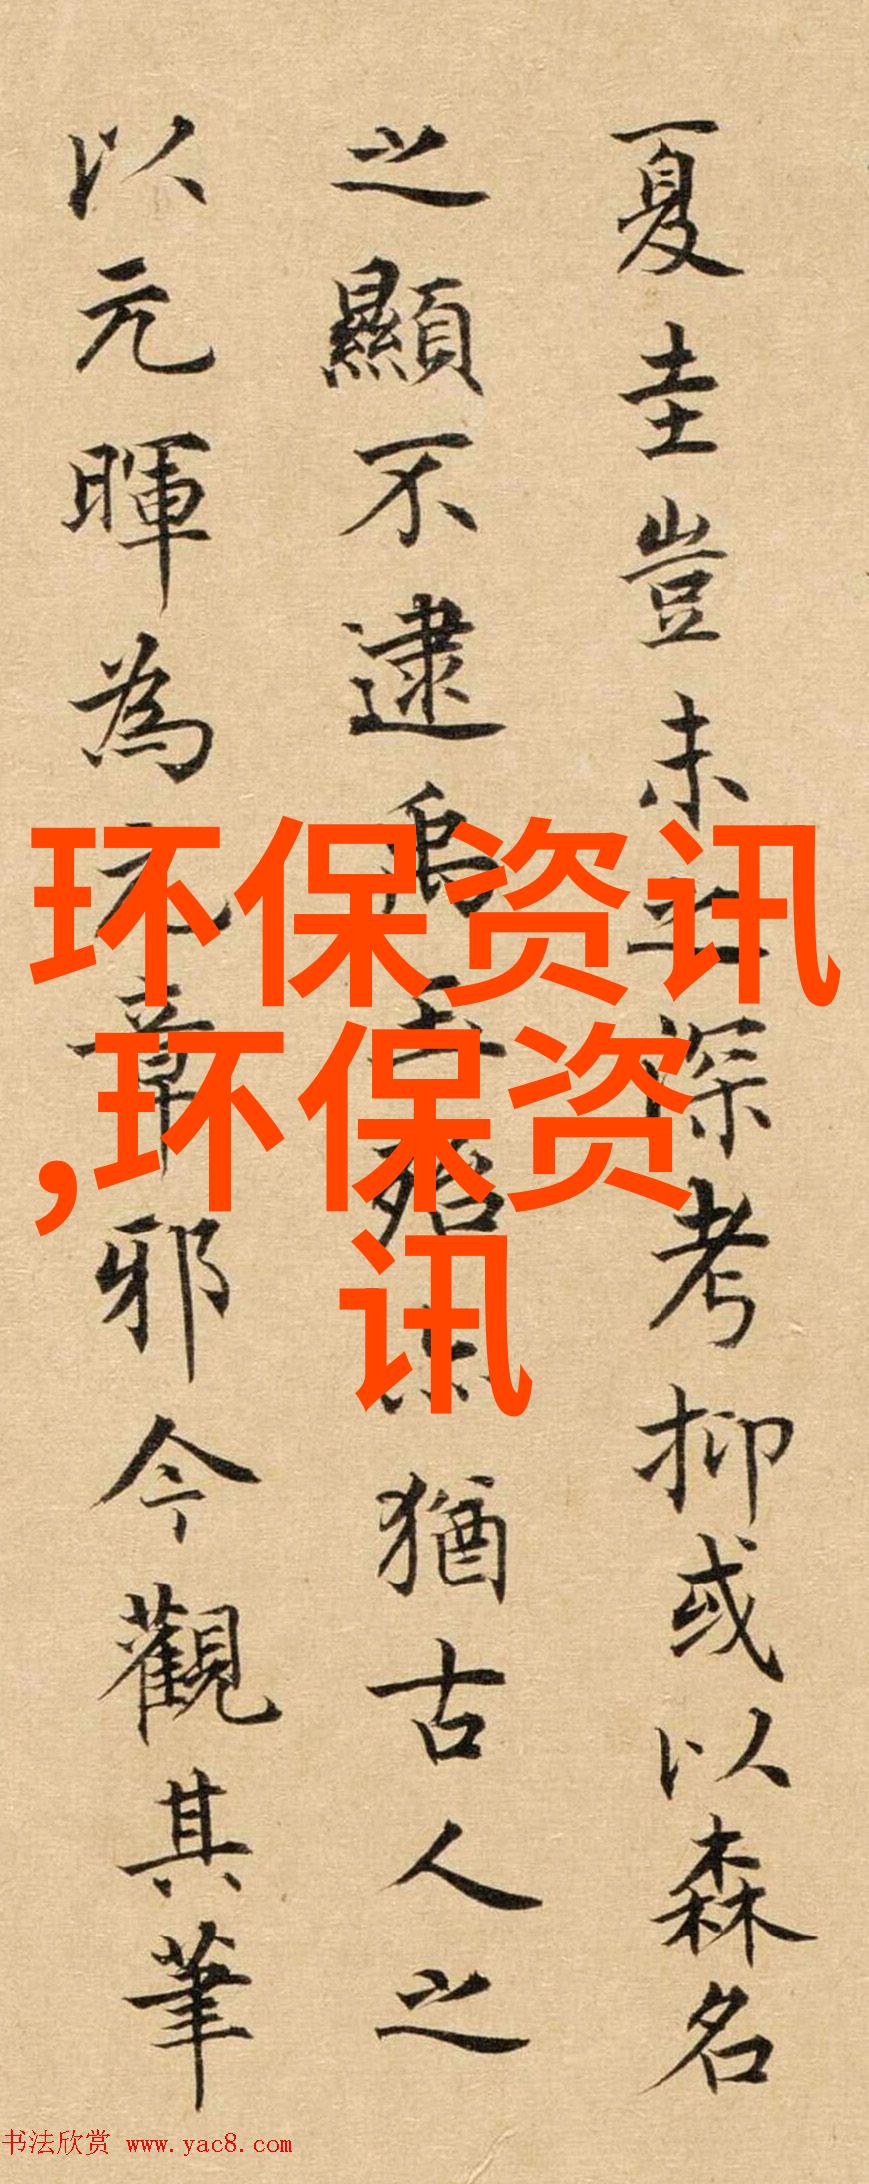 夏圭豈未之深考抑或以森名
之顯不逮殆亦猶古人之
以元暉為元章邪今觀其筆
环保资讯
,环保资
讯
书法欣赏 www.yac8.com